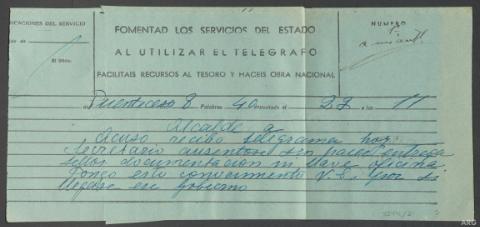 CACIONES DEL SERVICIO
FOMENTAD LOS SERVICIOS DEL ESTADO
AL UTILIZAR EL TELEGRAFO
FACILITAIS RECURSOS AL TESORO Y HACEIS OBRA NACIONAL
NUMERO
De Puenteceso 8 Palabras 40 depositado el 27 a las 11
Alcalde a
Acuso recibo telegrama hoy
Secretario ausentose sin hacer entrega
sellos documentacion ni llave oficina
Pongo esto conocimiento V.E. por si
llegase ese gobierno
ARG